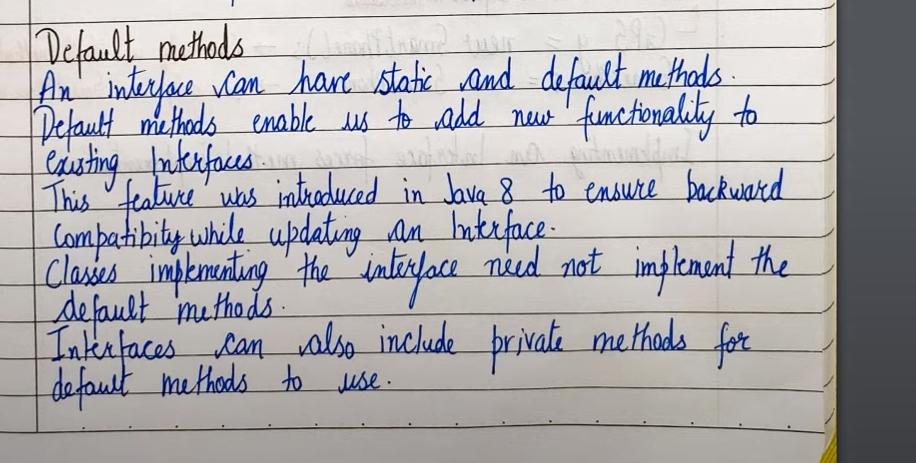 Default methods
An interface can have static and default methods.
Default methods enable us to add new functionality to
existing Interfaces.
This feature was introduced in Java 8 to ensure backward
Compatibity while updating an Interface.
Classes implementing the interface need not implement the
default methods.
Interfaces can also include private methods for
default methods to use.